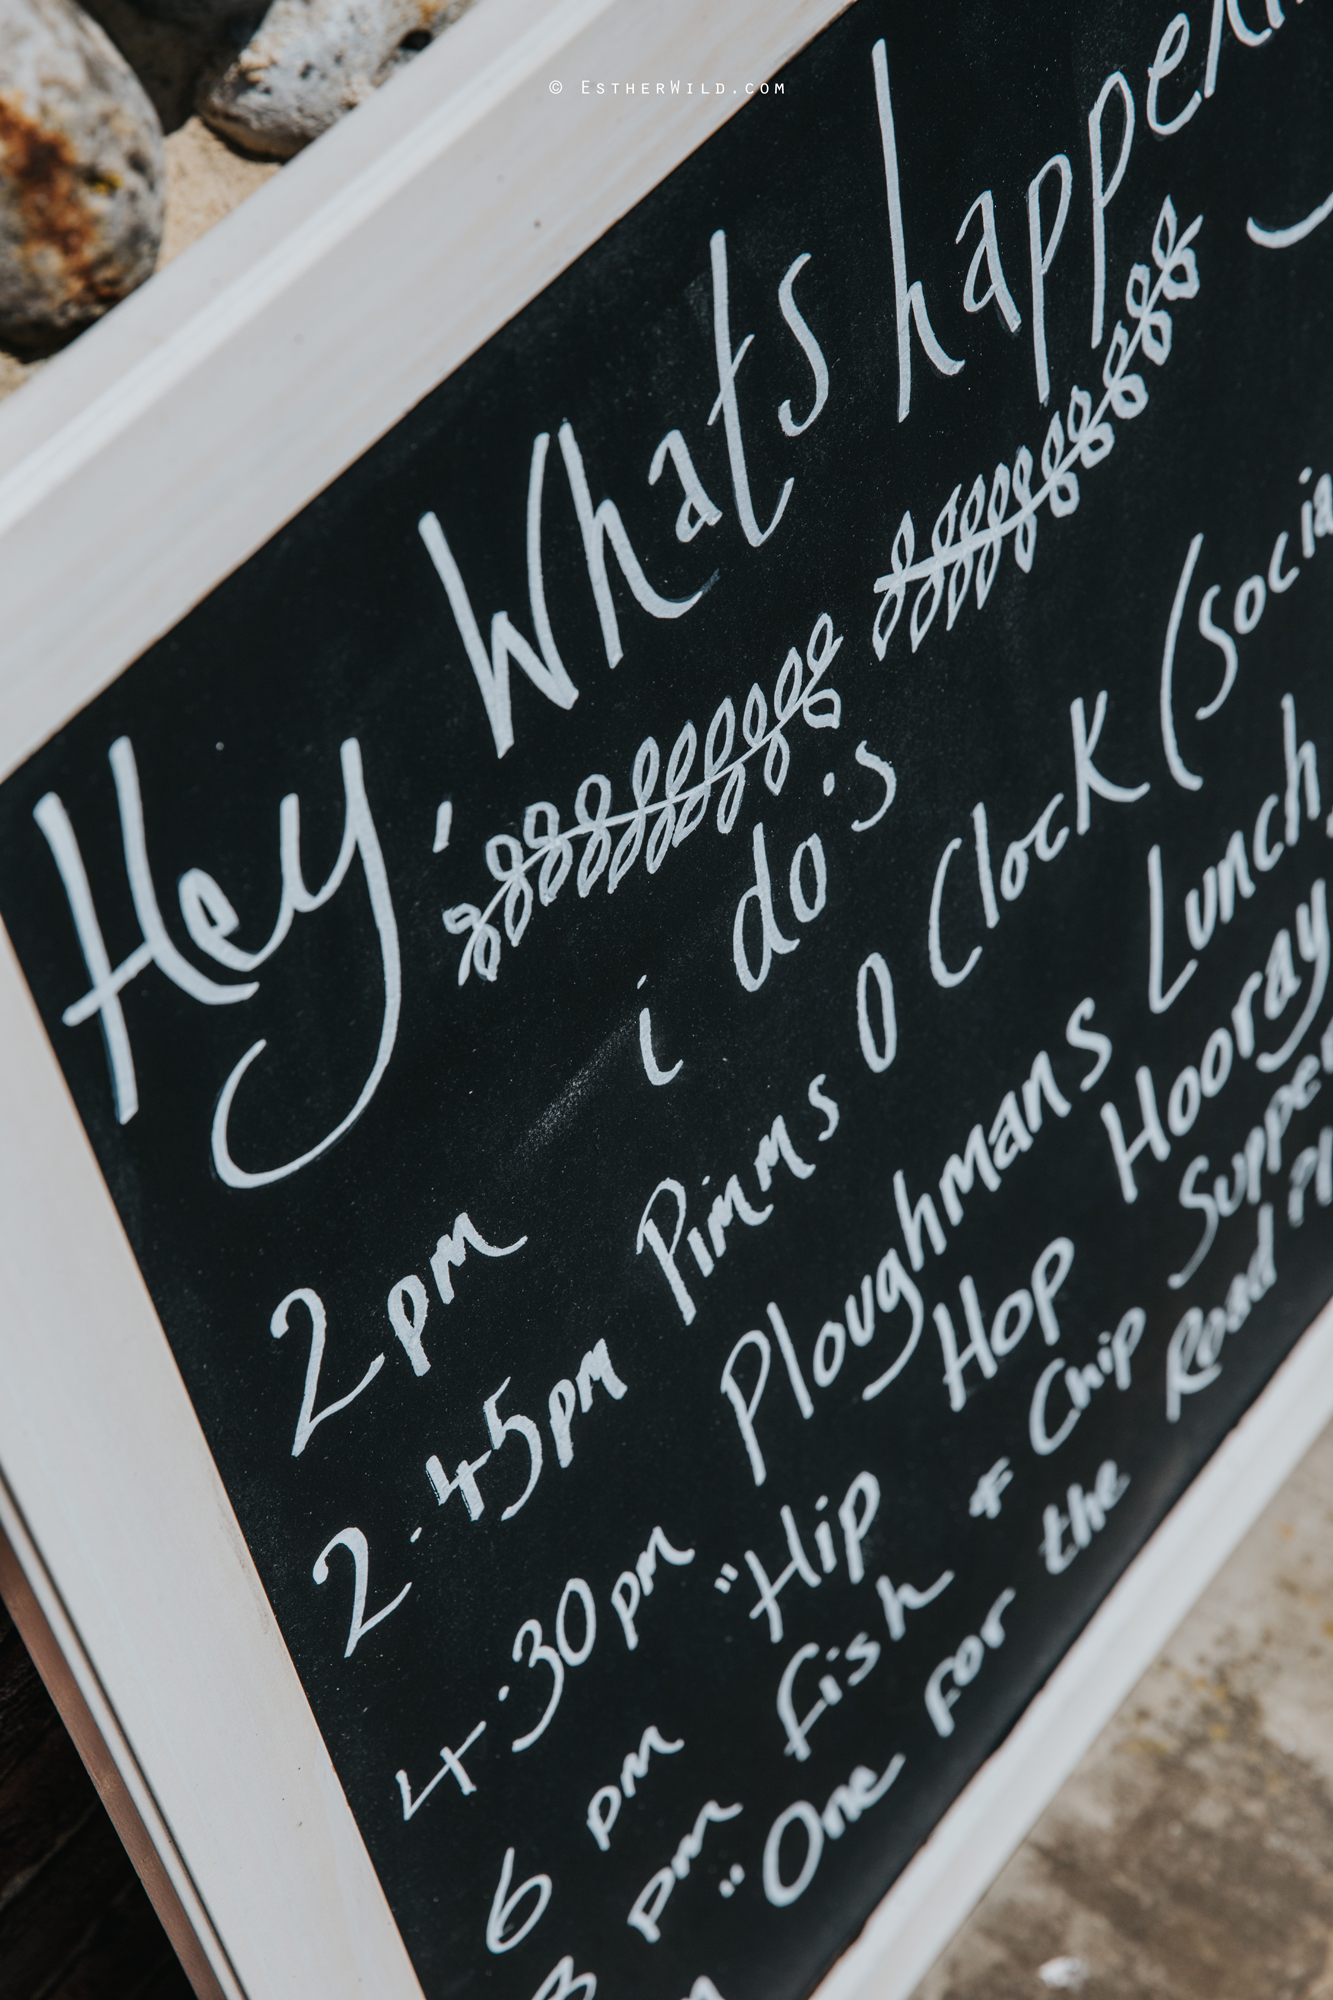 © EstherWild.com
Hey, Whats
2pm i do's
2.45pm Pimms O Clock (
4.30pm Ploughmans Lunch
6 pm "Hip Hop Hooray
pm Fish & Chip Supper
"One for the Road